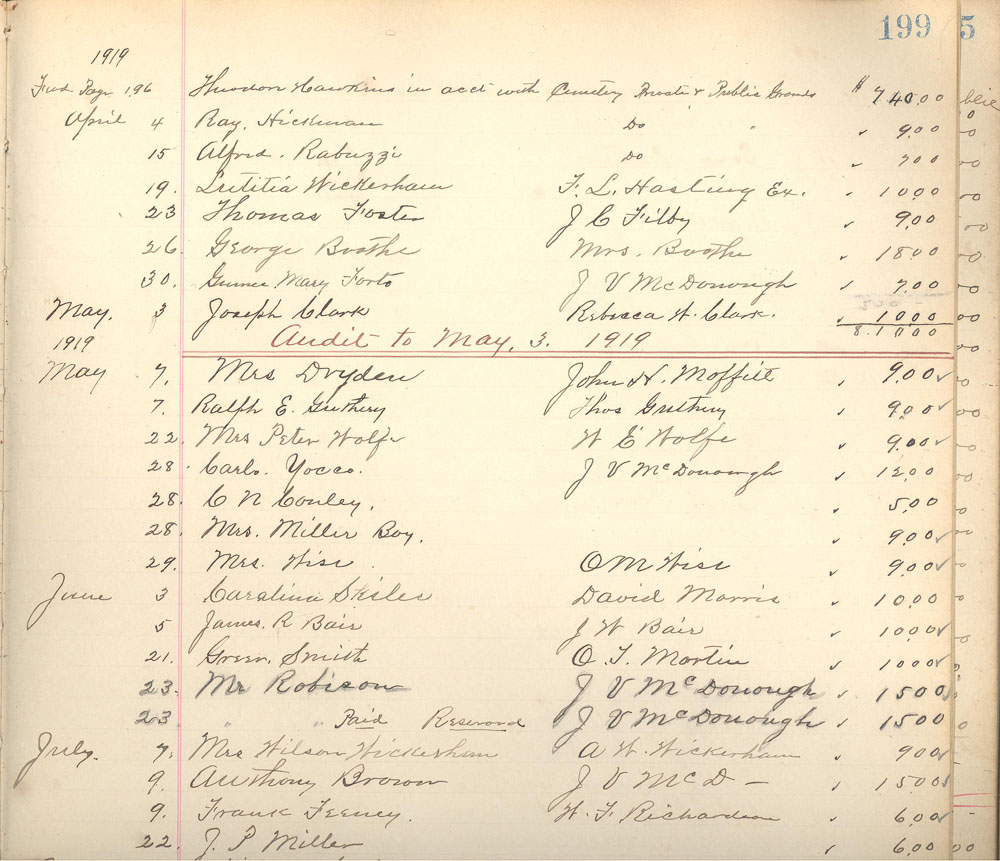 199 5
1919
Fwd Page 196 Theodon Hawkins in acct with Cemetery Private & Public Grounds $ 740.00
April 4 Ray. Hickman Do " 9.00
15 Alfred. Rabuzzi Do 7 00
19. Letitia Wickerham F. L. Hasting Ex. 10 00
23 Thomas Foster J C Filby 9.00
26. George Boothe Mrs. Boothe 18 00
30. Mary Forto J V McDonough 7.00
May. 3 Joseph Clark Rebecca H. Clark. 10 00
1919 Audit to May, 3. 1919 8.10 00
May 7. Mrs Dryden John N. Moffitt 9.00
7. Ralph E. Guthery Thos Guthery 9.00
22. Mrs Peter Wolfe W E Wolfe 9.00
28. Carlo. Yocco. J V McDonough 12.00
28. C N Conley. 5.00
28. Mrs. Miller Boy. 9.00
29. Mrs. Wise O M Wise 9.00
June 3 Caralina Skiles David Morris 10.00
5 James. R Bair J W Bair 10.00
21. Green. Smith O. T. Martin 10 00
23. Mr Robison J V McDonough 15 00
23 " " Paid Reserved J V McDonough 15 00
July. 7. Mrs Wilson Wickerham A W. Wickerham 9 00
9. Anthony Brown J V McD — 15 00
9. Frank Feeney. W. F. Richardson 6.00
22. J. P Miller 6.00